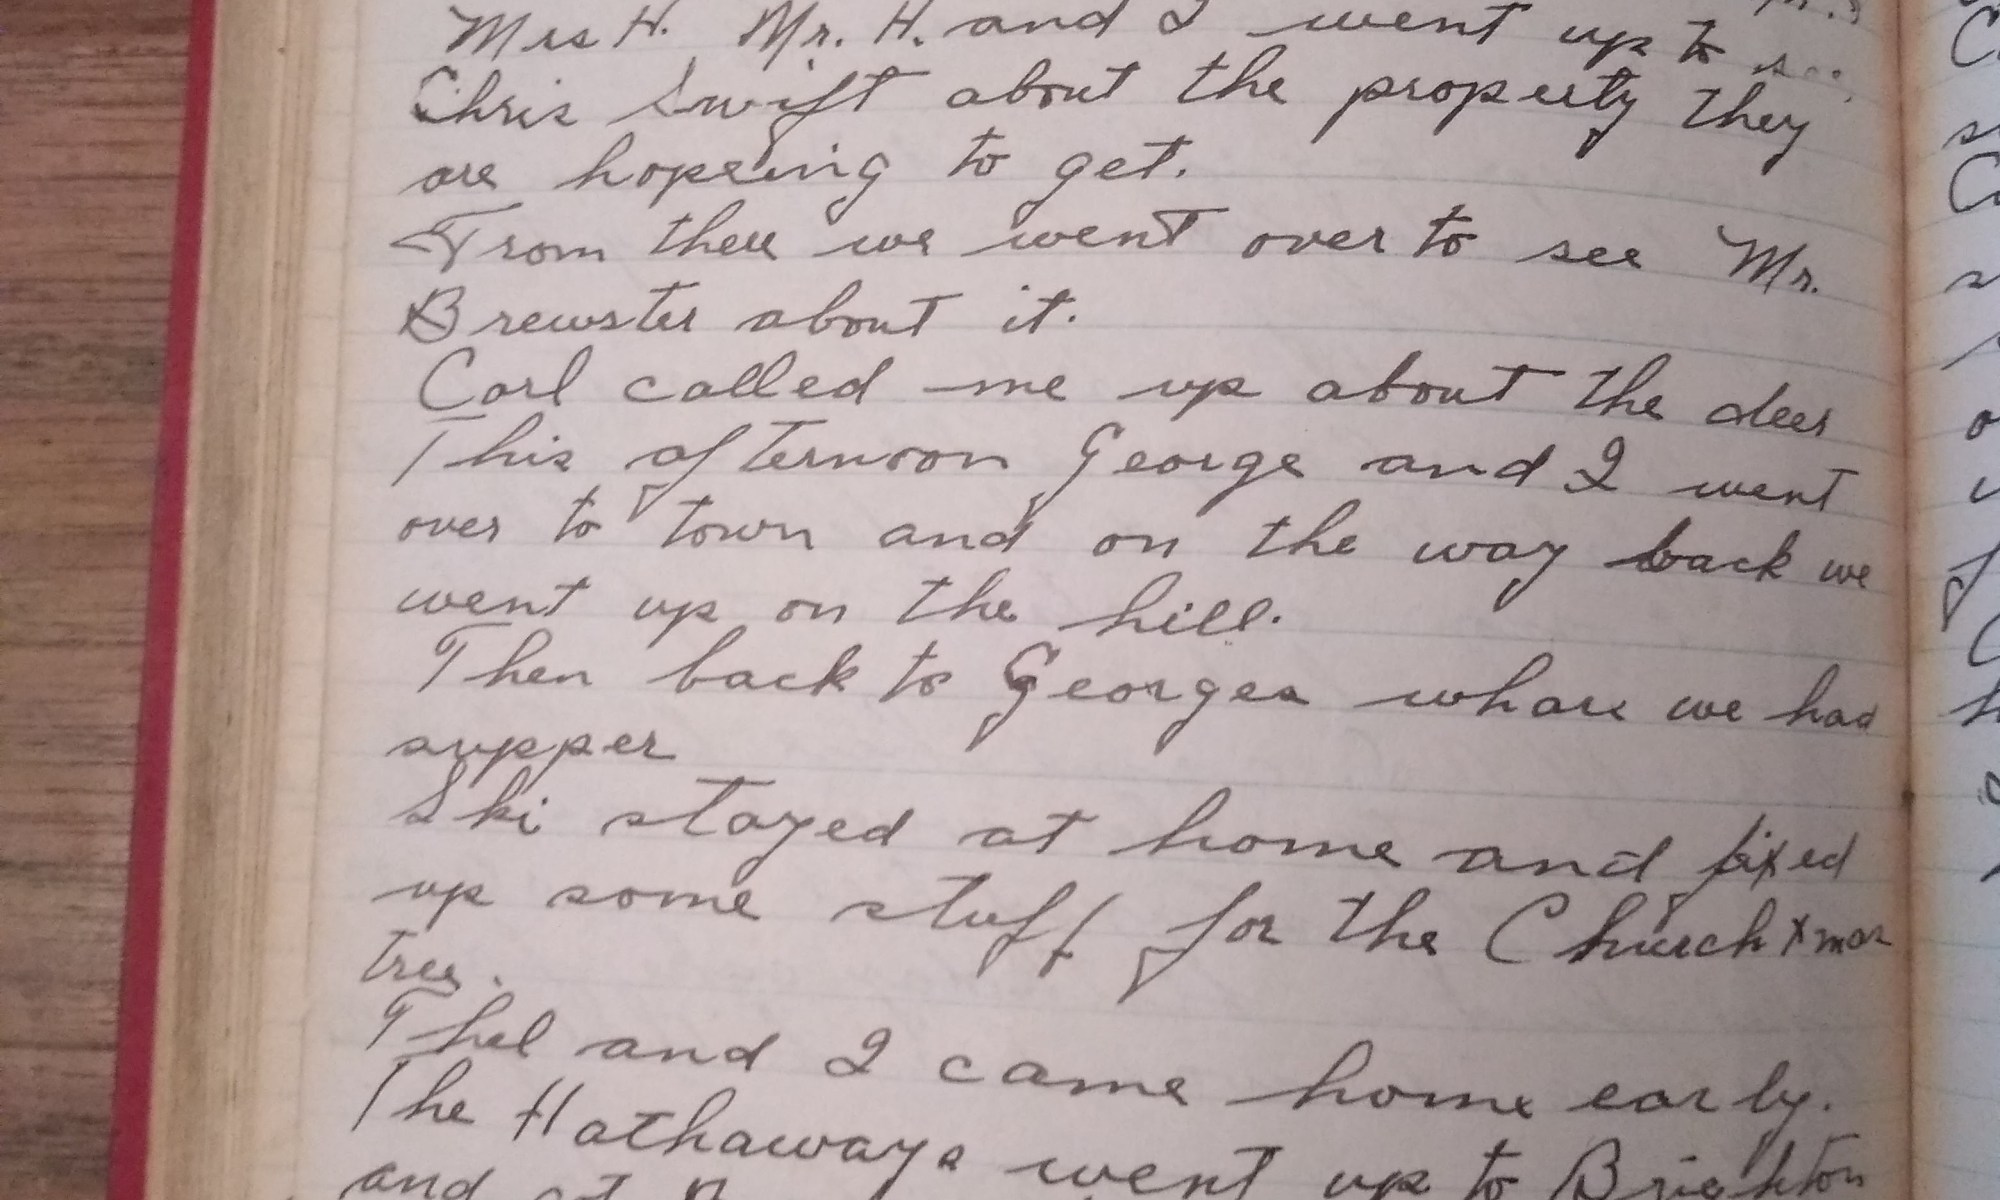 Mrs H. Mr. H. and I went up to see
Chris Swift about the property they
are hopeing to get.
From there we went over to see Mr.
Brewster about it.
Carl called me up about the deer
This afternoon George and I went
over to town and on the way back we
went up on the hill.
Then back to Georges whare we had
supper
Ski stayed at home and fixed
up some stuff for the Church Xmas
tree.
Thel and I came home early.
The Hathaways went up to Brighton
and at